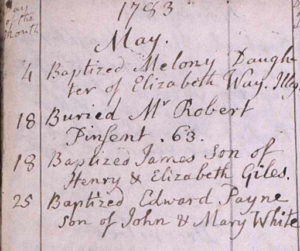 1783
Day
of the
Month
May.
4 Baptized Melony Daugh-
ter of Elizabeth Way. Illeg
18 Buried Mr Robert
Pinsent. 63.
18 Baptized James Son of
Henry & Elizabeth Giles.
25 Baptized Edward Payne
Son of John & Mary White